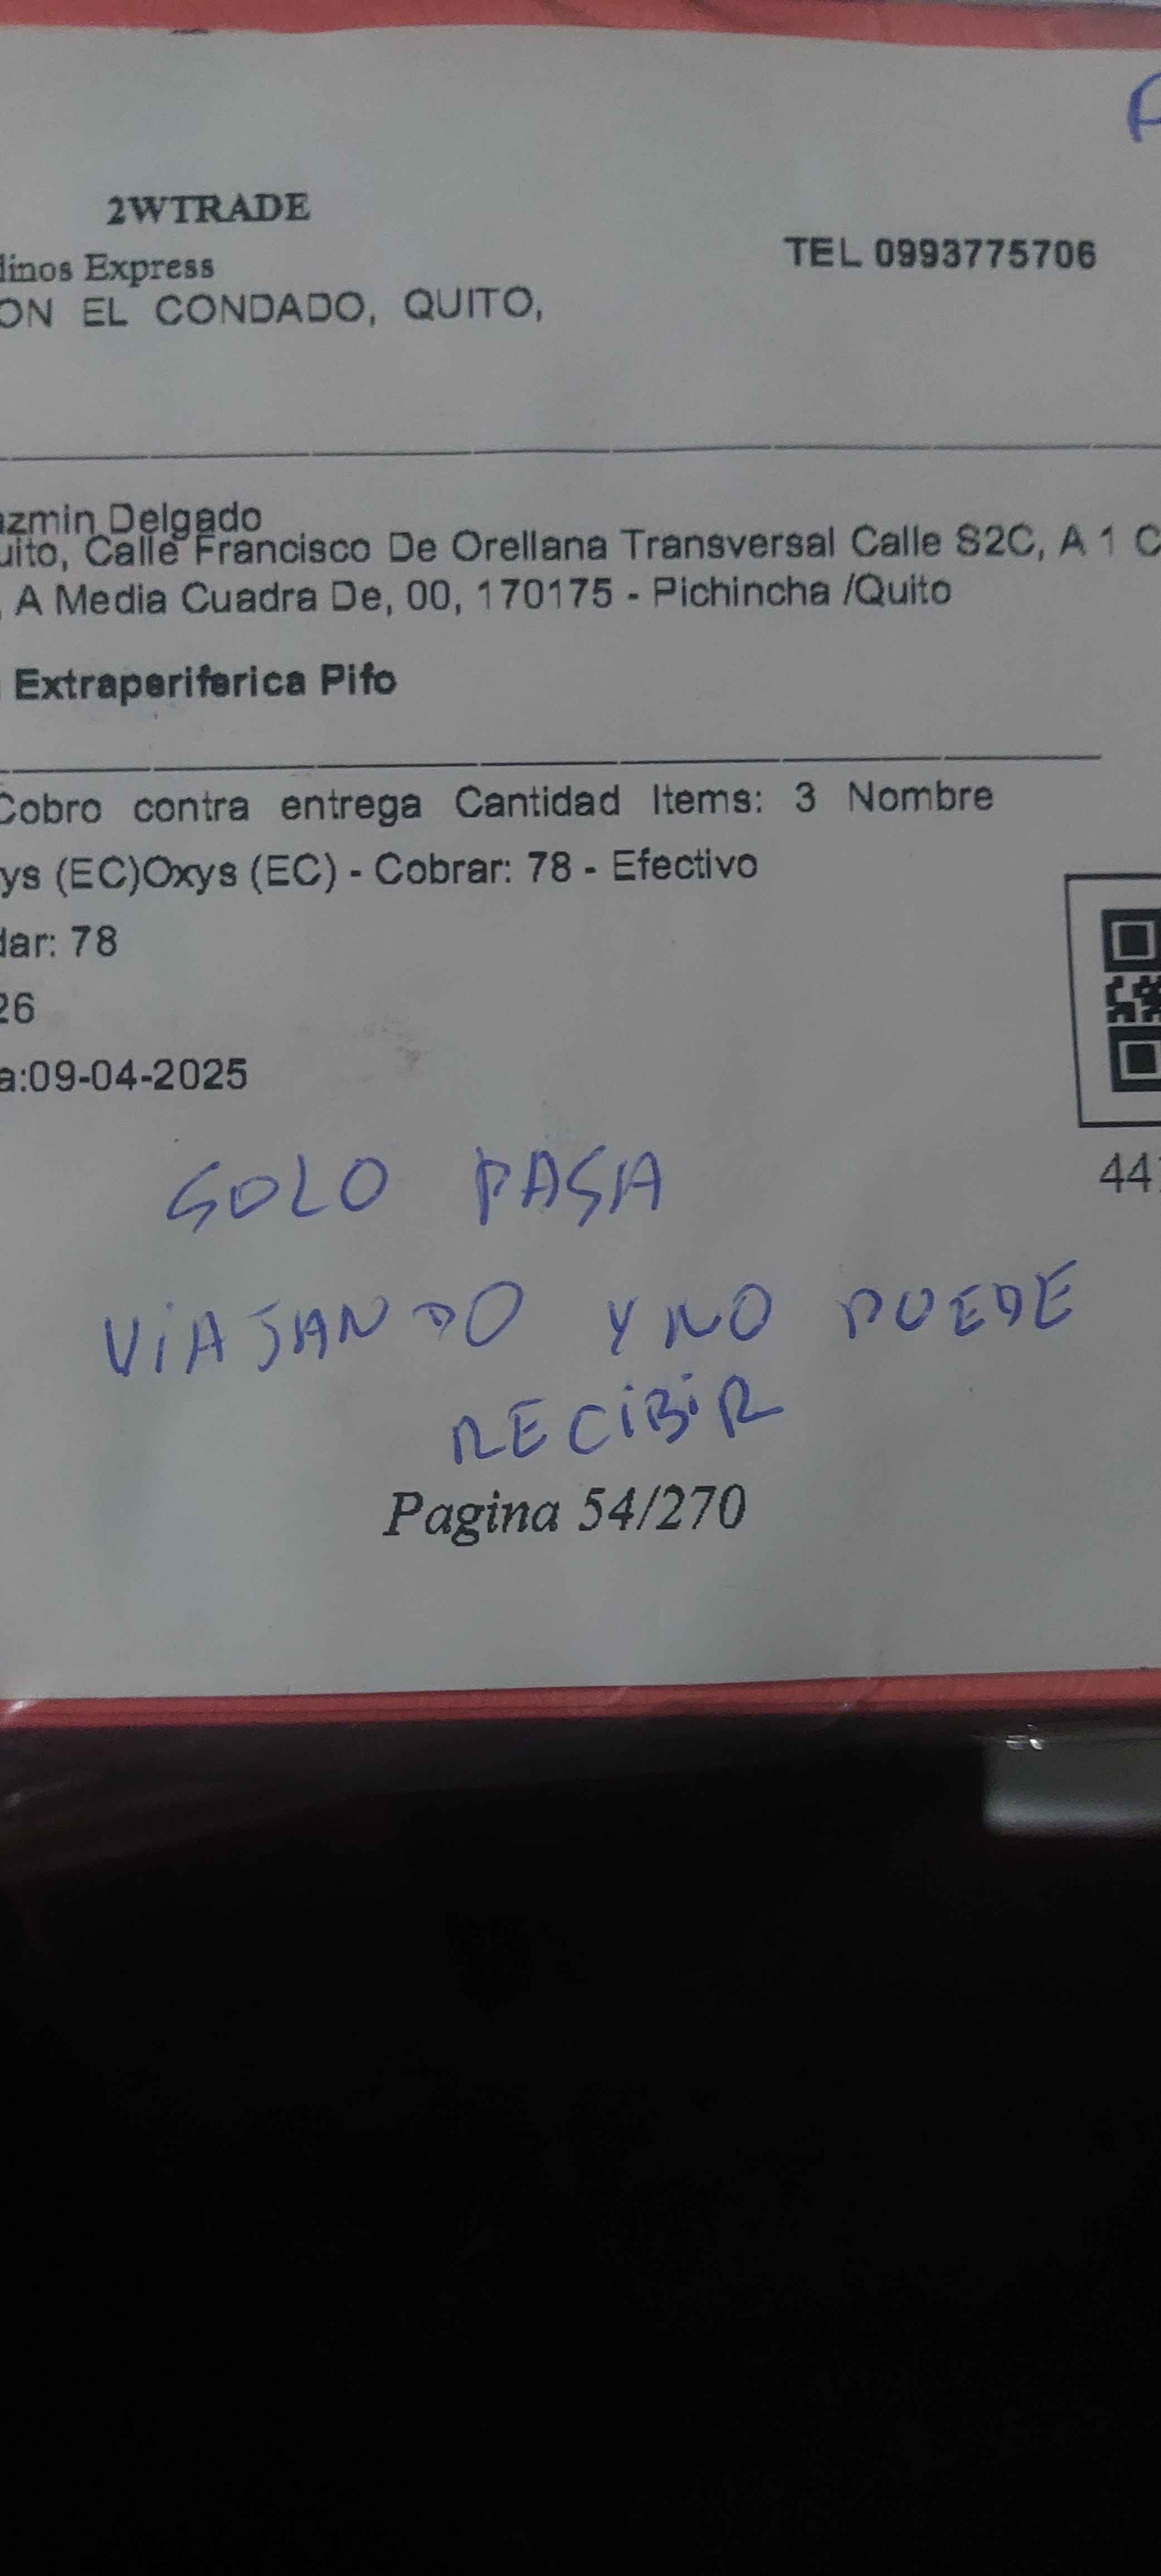 2WTRADE
linos Express
TEL 0993775706
ON EL CONDADO, QUITO,
azmin Delgado
uito, Calle Francisco De Orellana Transversal Calle S2C, A 1 C
, A Media Cuadra De, 00, 170175 - Pichincha /Quito
Extraperiferica Pifo
Cobro contra entrega Cantidad Items: 3 Nombre
ys (EC)Oxys (EC) - Cobrar: 78 - Efectivo
dar: 78
26
a:09-04-2025
44
SOLO PASA
ViAJANDO Y NO PUEDE
RECiBiR
Pagina 54/270